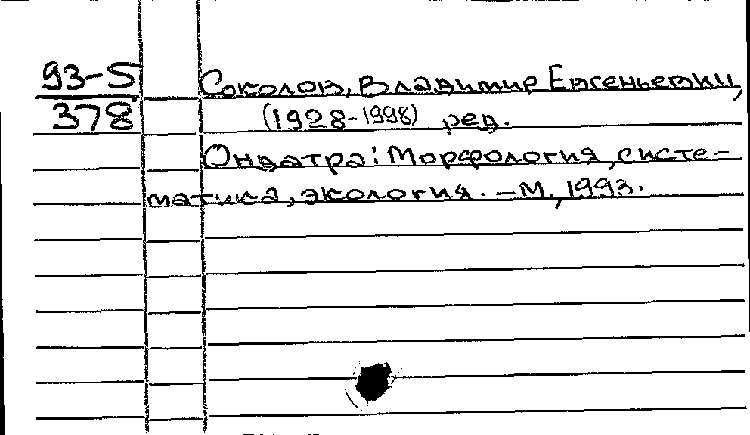 93-5
378
Соколов, Владимир Евгеньевич,
(1928-1998) ред.
Ондатра: Морфология, систе-
матика, экология. - М., 1993.